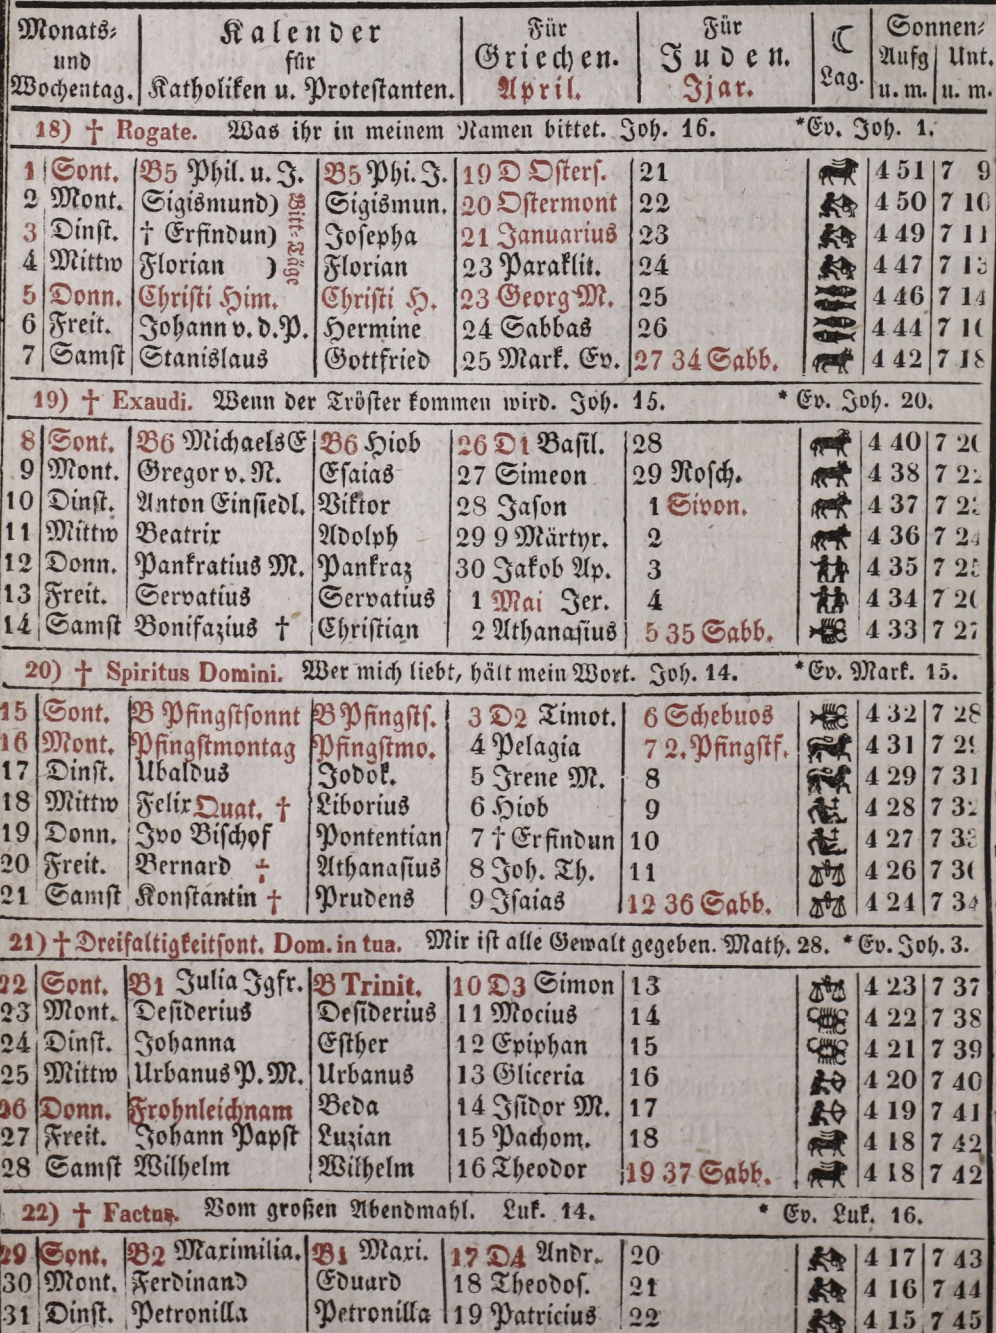 Monats- und Wochentag. Kalender für Katholiken u. Protestanten. Für Griechen. April. Für Juden. Ijar. ☾ Lag. Sonnen- Aufg u. m. Unt. u. m.
18) † Rogate. Was ihr in meinem Namen bittet. Joh. 16. *Ev. Joh. 1.
1 Sont. B5 Phil. u. J. B5 Phi. J. 19 D Osters. 21 4 51 7 9
2 Mont. Sigismund) Sigismun. 20 Ostermont 22 4 50 7 10
3 Dinst. † Erfindun) Bitt-Täge Josepha 21 Januarius 23 4 49 7 11
4 Mittw Florian ) Florian 23 Paraklit. 24 4 47 7 13
5 Donn. Christi Him. Christi H. 23 Georg M. 25 4 46 7 14
6 Freit. Johann v. d. P. Hermine 24 Sabbas 26 4 44 7
7 Samst Stanislaus Gottfried 25 Mark. Ev. 27 34 Sabb. 4 42 7 18
19) † Exaudi. Wenn der Tröster kommen wird. Joh. 15. * Ev. Joh. 20.
8 Sont. B6 MichaelsE B6 Hiob 26 D1 Basil. 28 4 40 7
9 Mont. Gregor v. N. Esaias 27 Simeon 29 Rosch. 4 38 7
10 Dinst. Anton Einsiedl. Viktor 28 Jason 1 Sivon. 4 37 7
11 Mittw Beatrix Adolph 29 9 Märtyr. 2 4 36 7 24
12 Donn. Pankratius M. Pankraz 30 Jakob Ap. 3 4 35 7 25
13 Freit. Servatius Servatius 1 Mai Jer. 4 4 34 7
14 Samst Bonifazius † Christian 2 Athanasius 5 35 Sabb. 4 33 7 27
20) † Spiritus Domini. Wer mich liebt, hält mein Wort. Joh. 14. *Ev. Mark. 15.
15 Sont. B Pfingstsonnt B Pfingsts. 3 D2 Timot. 6 Schebuos 4 32 7 28
16 Mont. Pfingstmontag Pfingstmo. 4 Pelagia 7 2. Pfingstf. 4 31 7 29
17 Dinst. Ubaldus Jodok. 5 Irene M. 8 4 29 7 31
18 Mittw Felix Quat. † Liborius 6 Hiob 9 4 28 7
19 Donn. Ivo Bischof Pontentian 7 † Erfindun 10 4 27 7 33
20 Freit. Bernard † Athanasius 8 Joh. Th. 11 4 26 7
21 Samst Konstantin † Prudens 9 Isaias 12 36 Sabb. 4 24 7 34
21) † Dreifaltigkeitsont. Dom. in tua. Mir ist alle Gewalt gegeben. Math. 28. * Ev. Joh. 3.
22 Sont. B1 Julia Jgfr. B Trinit. 10 D3 Simon 13 4 23 7 37
23 Mont. Desiderius Desiderius 11 Mocius 14 4 22 7 38
24 Dinst. Johanna Esther 12 Epiphan 15 4 21 7 39
25 Mittw Urbanus P. M. Urbanus 13 Gliceria 16 4 20 7 40
26 Donn. Frohnleichnam Beda 14 Isidor M. 17 4 19 7 41
27 Freit. Johann Papst Luzian 15 Pachom. 18 4 18 7 42
28 Samst Wilhelm Wilhelm 16 Theodor 19 37 Sabb. 4 18 7 42
22) † Factus. Vom großen Abendmahl. Luk. 14. * Ev. Luk. 16.
29 Sont. B2 Maximilia. B1 Maxi. 17 D4 Andr. 20 4 17 7 43
30 Mont. Ferdinand Eduard 18 Theodos. 21 4 16 7 44
31 Dinst. Petronilla Petronilla 19 Patricius 22 4 15 7 45